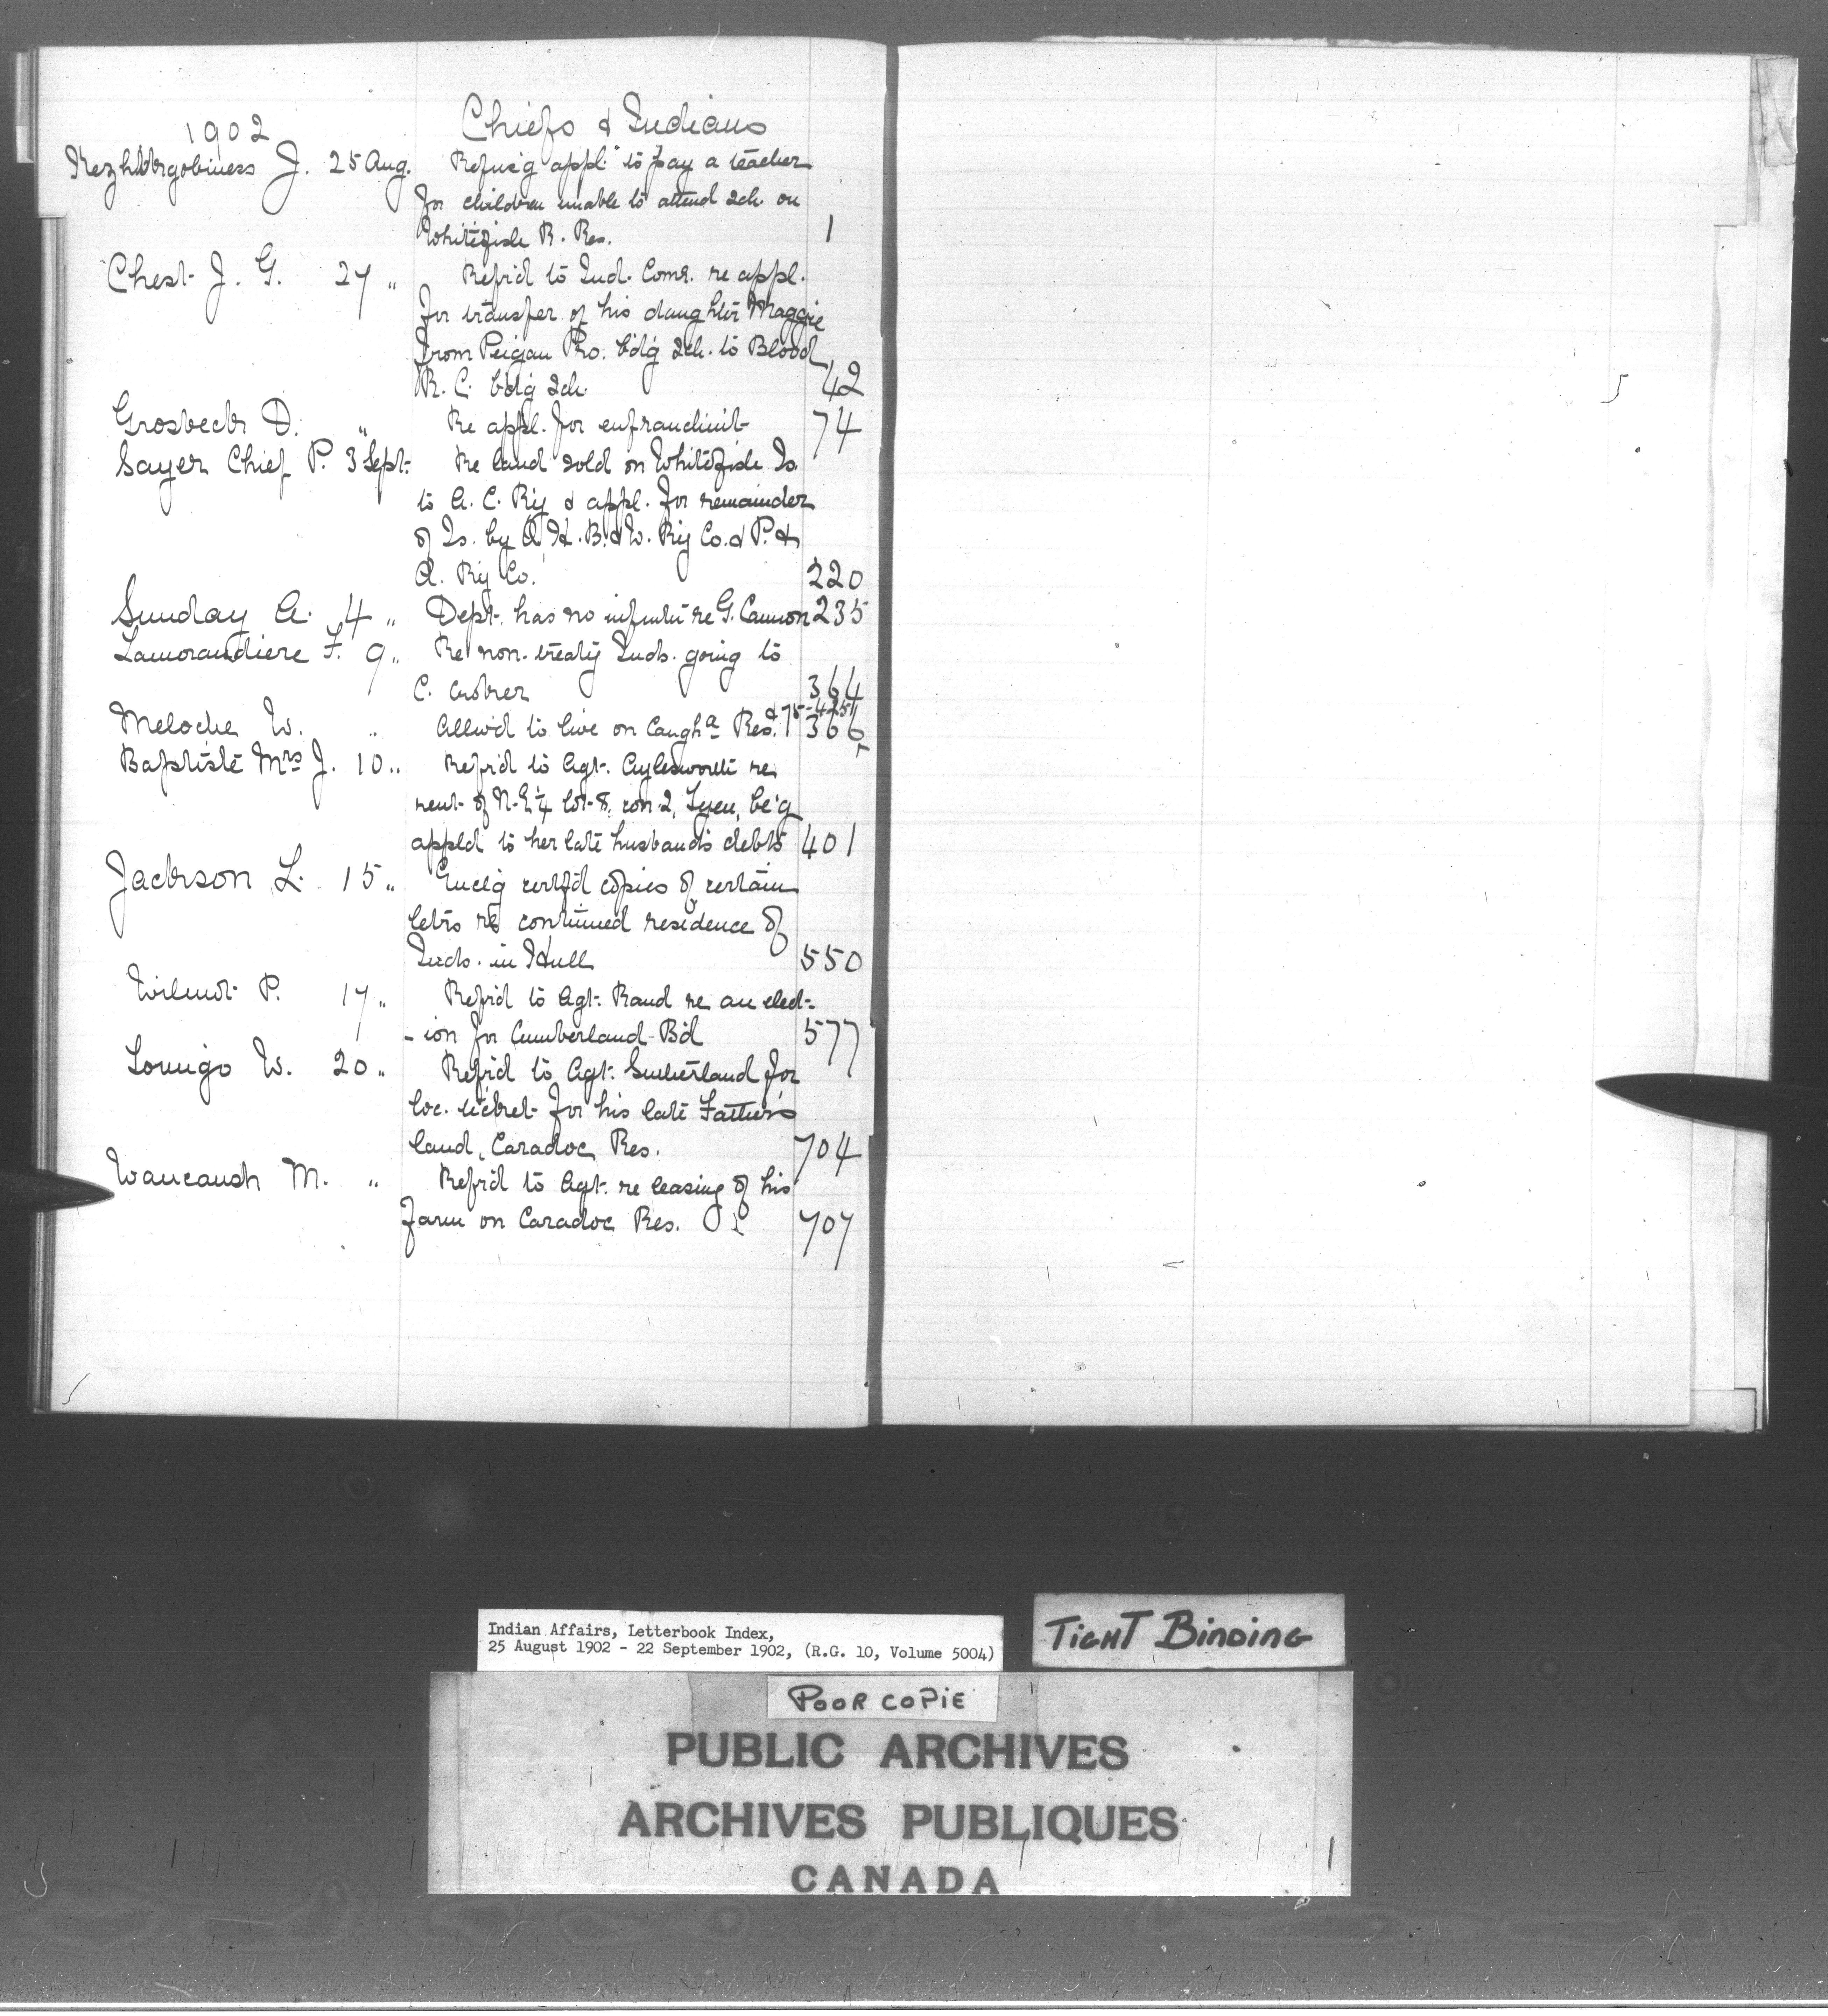 1902 Chiefs & Indians
Kezhikgobiness J. 25 Aug. Refus'g appl. to pay a teacher
for children unable to attend sch. on
Whitefish R. Res. 1
Chest J. G. 27 " Refr'd to Ind. Comr. re appl.
for transfer of his daughter Maggie
from Peigan Pro. bd'g sch. to Blood
R. C. bd'g sch. 42
Grosbeck D. " Re appl. for enfranchmt 74
Sayer Chief P. 3 Sept. Re land sold on Whitefish Is.
to A. C. Ry & appl. for remainder
of Is. by O. H. B. & W. Ry Co. & P. &
O. Ry Co. 220
Sunday A. 4 " Dept. has no infmtn re G. Cannon 235
Lamorandiere F. 9 " Re non-treaty Inds. going to
C. Croker 364
& 75-425
Meloche W. " Allw'd to live on Caugha Res. 366
Baptiste Mrs J. 10 " Refr'd to Agt. Aylesworth re
rent of N.E¼ lot 8, con. 2, Tyen, be'g
appld to her late husband's debts 401
Jackson L. 15 " Encl'g certf'd copies of certain
letrs re continued residence of
Inds. in Hull 550
Wilmot P. 17 " Refr'd to Agt. Rand re an elect-
-ion for Cumberland Bd 577
Lomigo W. 20 " Refr'd to Agt. Sutherland for
loc. ticket for his late Father's
land, Caradoc Res. 704
Waucaush M. " Refr'd to Agt. re leasing of his
farm on Caradoc Res. 707
Indian Affairs, Letterbook Index,
25 August 1902 - 22 September 1902, (R.G. 10, Volume 5004)
TIGHT BINDING
POOR COPIE
PUBLIC ARCHIVES
ARCHIVES PUBLIQUES
CANADA